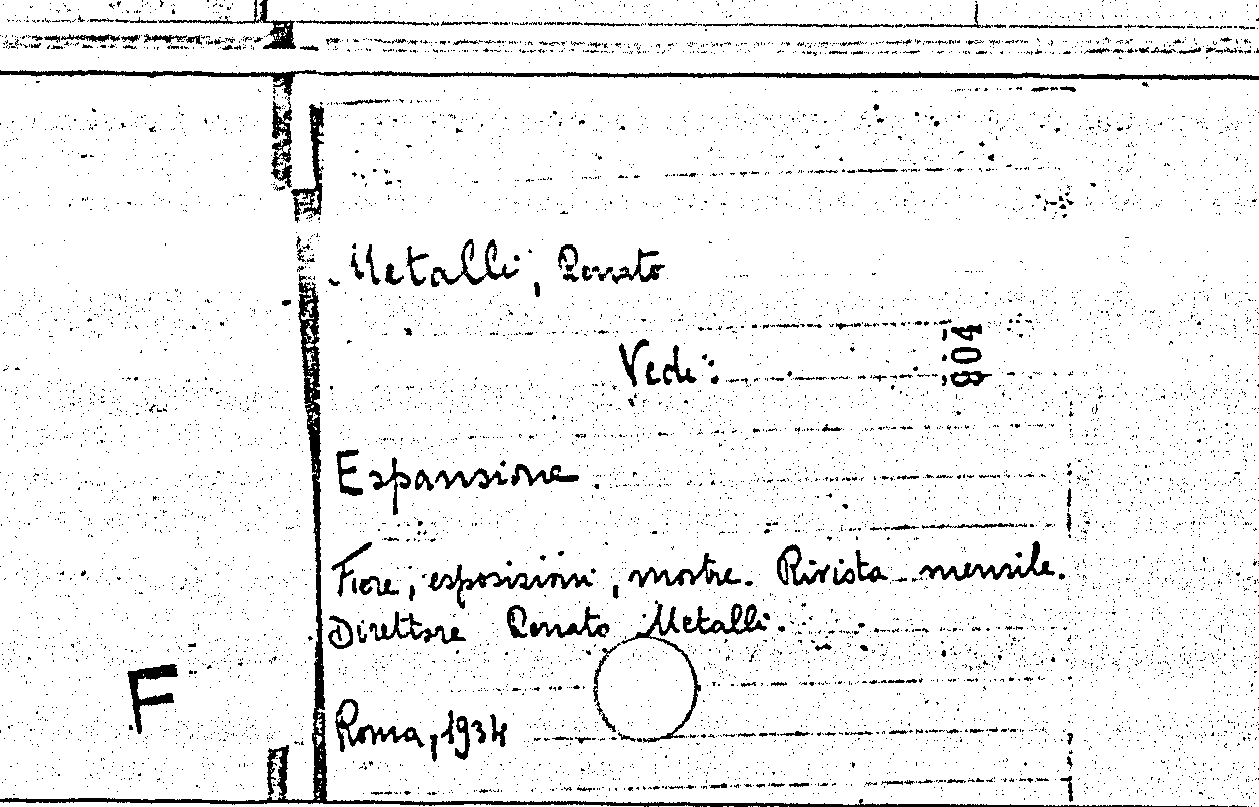 Metalli, Renato
Vedi:
804
Espansione.
Fiere, esposizioni, mostre. Rivista mensile.
Direttore Renato Metalli.
F
Roma, 1934